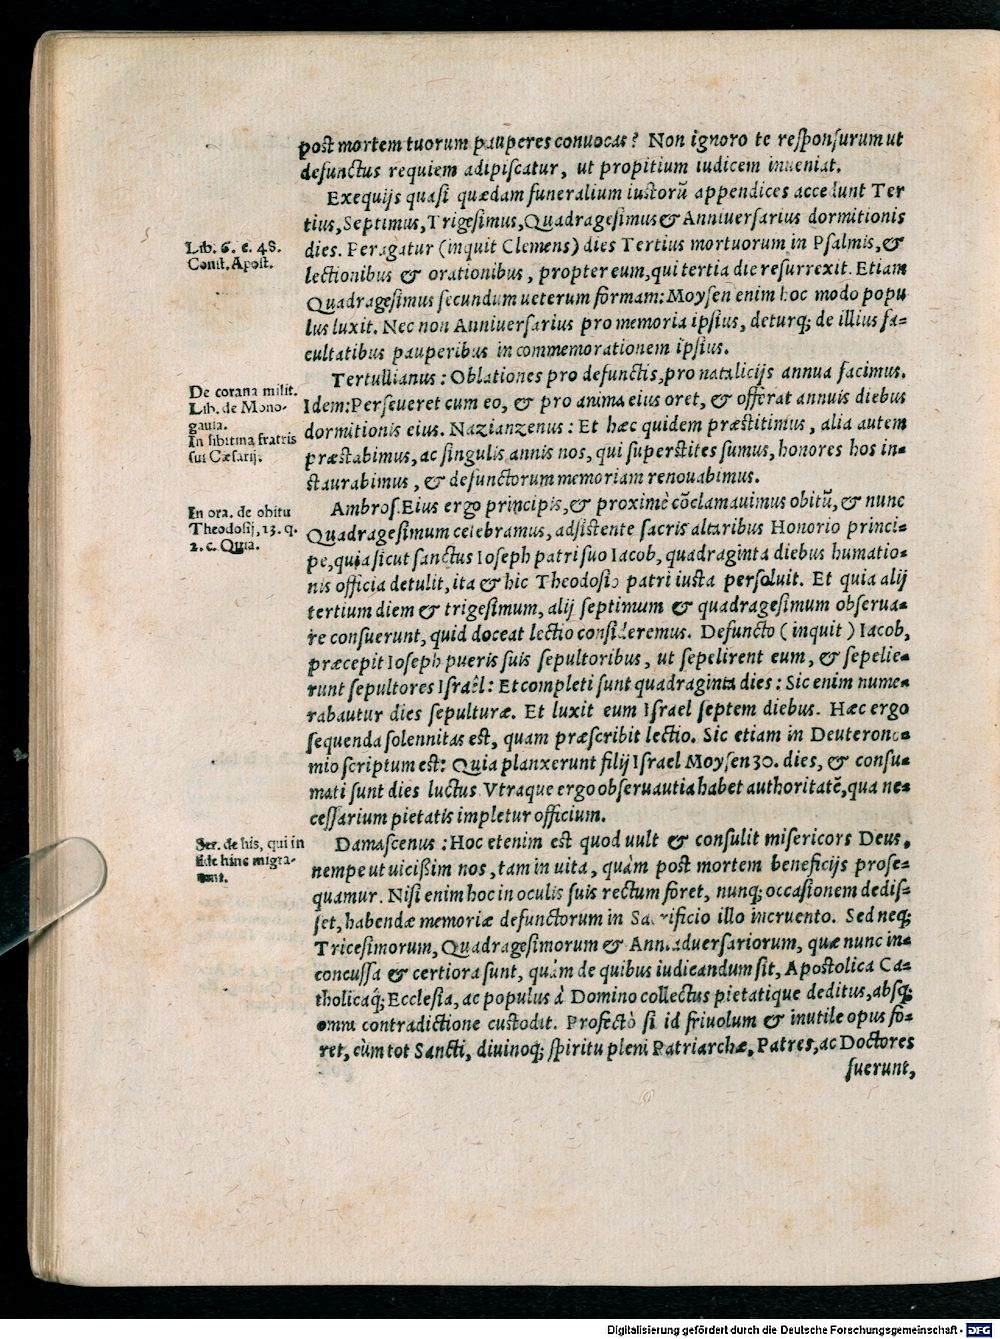 post mortem tuorum pauperes conuocas? Non ignoro te responsurum ut
defunctus requiem adipiscatur, ut propitium iudicem inueniat.
Exequijs quasi quædam funeralium iustorũ appendices accedunt Ter
tius, Septimus, Trigesimus, Quadragesimus & Anniuersarius dormitionis
Lib. 6. c. 48.
Const. Apost.
dies. Peragatur (inquit Clemens) dies Tertius mortuorum in Psalmis, &
lectionibus & orationibus, propter eum, qui tertia die resurrexit. Etiam
Quadragesimus secundum ueterum formam: Moysen enim hoc modo popu
lus luxit. Nec non Anniuersarius pro memoria ipsius, deturq; de illius fa=
cultatibus pauperibus in commemorationem ipsius.
De corana milit.
Lib. de Mono-
gauia.
In sibitma fratris
sui Cæsarij.
Tertullianus: Oblationes pro defunctis, pro natalicijs annua facimus.
Idem: Perseueret cum eo, & pro anima eius oret, & offerat annuis diebus
dormitionis eius. Nazianzenus: Et hæc quidem præstitimus, alia autem
præstabimus, ac singulis annis nos, qui superstites sumus, honores hos in=
staurabimus, & defunctorum memoriam renouabimus.
In ora. de obitu
Theodosij, 13. q.
2. c. Quia.
Ambros. Eius ergo principis, & proximè cõclamauimus obitũ, & nunc
Quadragesimum celebramus, adsistente sacris altaribus Honorio princi=
pe, quia sicut sanctus Ioseph patri suo Iacob, quadraginta diebus humatio=
nis officia detulit, ita & hic Theodosio patri iusta persoluit. Et quia alij
tertium diem & trigesimum, alij septimum & quadragesimum obserua=
re consuerunt, quid doceat lectio consideremus. Defuncto (inquit) Iacob,
præcepit Ioseph pueris suis sepultoribus, ut sepelirent eum, & sepelie=
runt sepultores Israël: Et completi sunt quadraginta dies: Sic enim nume=
rabautur dies sepulturæ. Et luxit eum Israel septem diebus. Hæc ergo
sequenda solennitas est, quam præscribit lectio. Sic etiam in Deuterono=
mio scriptum est: Quia planxerunt filij Israel Moysen 30. dies, & consu=
mati sunt dies luctus. Vtraque ergo obseruautia habet authoritatẽ, qua ne=
cessarium pietatis impletur officium.
Ser. de his, qui in
fide hinc migra-
runt.
Damascenus: Hoc etenim est quod uult & consulit misericors Deus,
nempe ut uicißim nos, tam in uita, quàm post mortem beneficijs prose=
quamur. Nisi enim hoc in oculis suis rectum foret, nunq; occasionem dedis=
set, habendæ memoriæ defunctorum in Sacrificio illo incruento. Sed neq;
Tricesimorum, Quadragesimorum & Anniaduersariorum, quæ nunc in=
concussa & certiora sunt, quàm de quibus iudicandum sit, Apostolica Ca=
tholicaq́; Ecclesia, ac populus à Domino collectus pietatique deditus, absq;
omni contradictione custodit. Profectò si id friuolum & inutile opus fo=
ret, cùm tot Sancti, diuinoq; spiritu pleni Patriarchæ, Patres, ac Doctores
fuerunt,
Digitalisierung gefördert durch die Deutsche Forschungsgemeinschaft - DFG